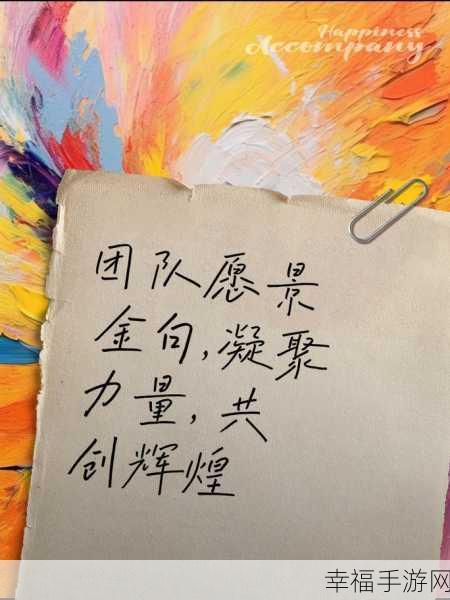 Happiness
Accompany
团队愿景
金句,凝聚
力量,共
创辉煌
幸福手游网